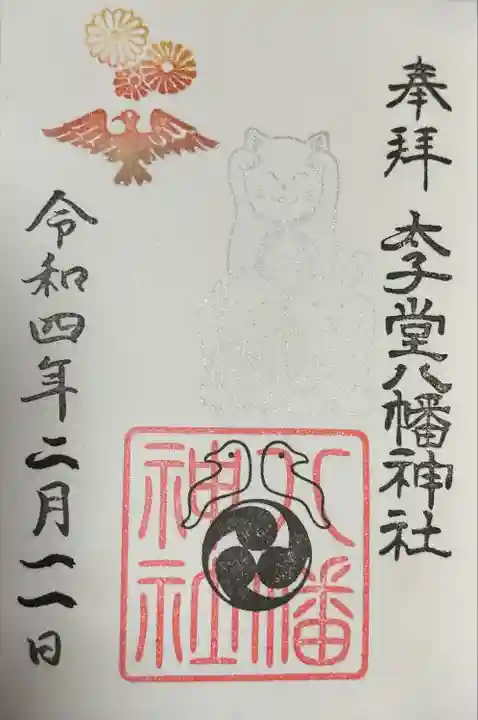 奉拝 太子堂八幡神社
八幡
神社
令和四年二月一一日